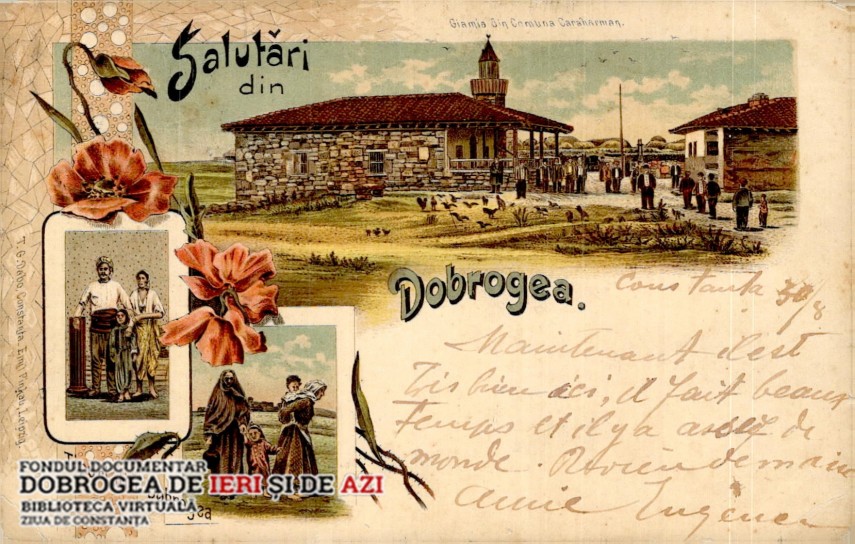 Giamia din Comuna Caraharman.
Salutări
din
Dobrogea.
Constanta 30/8
Maintenant il est
Très bien ici, il fait beau
Temps et il y a assez de
monde. Reviens demain
Annie Eugénie
T. G. Dabo, Constanța, Emil Pinkau, Leipzig.
FONDUL DOCUMENTAR
DOBROGEA DE IERI ȘI DE AZI
BIBLIOTECA VIRTUALĂ
ZIUA DE CONSTANȚA